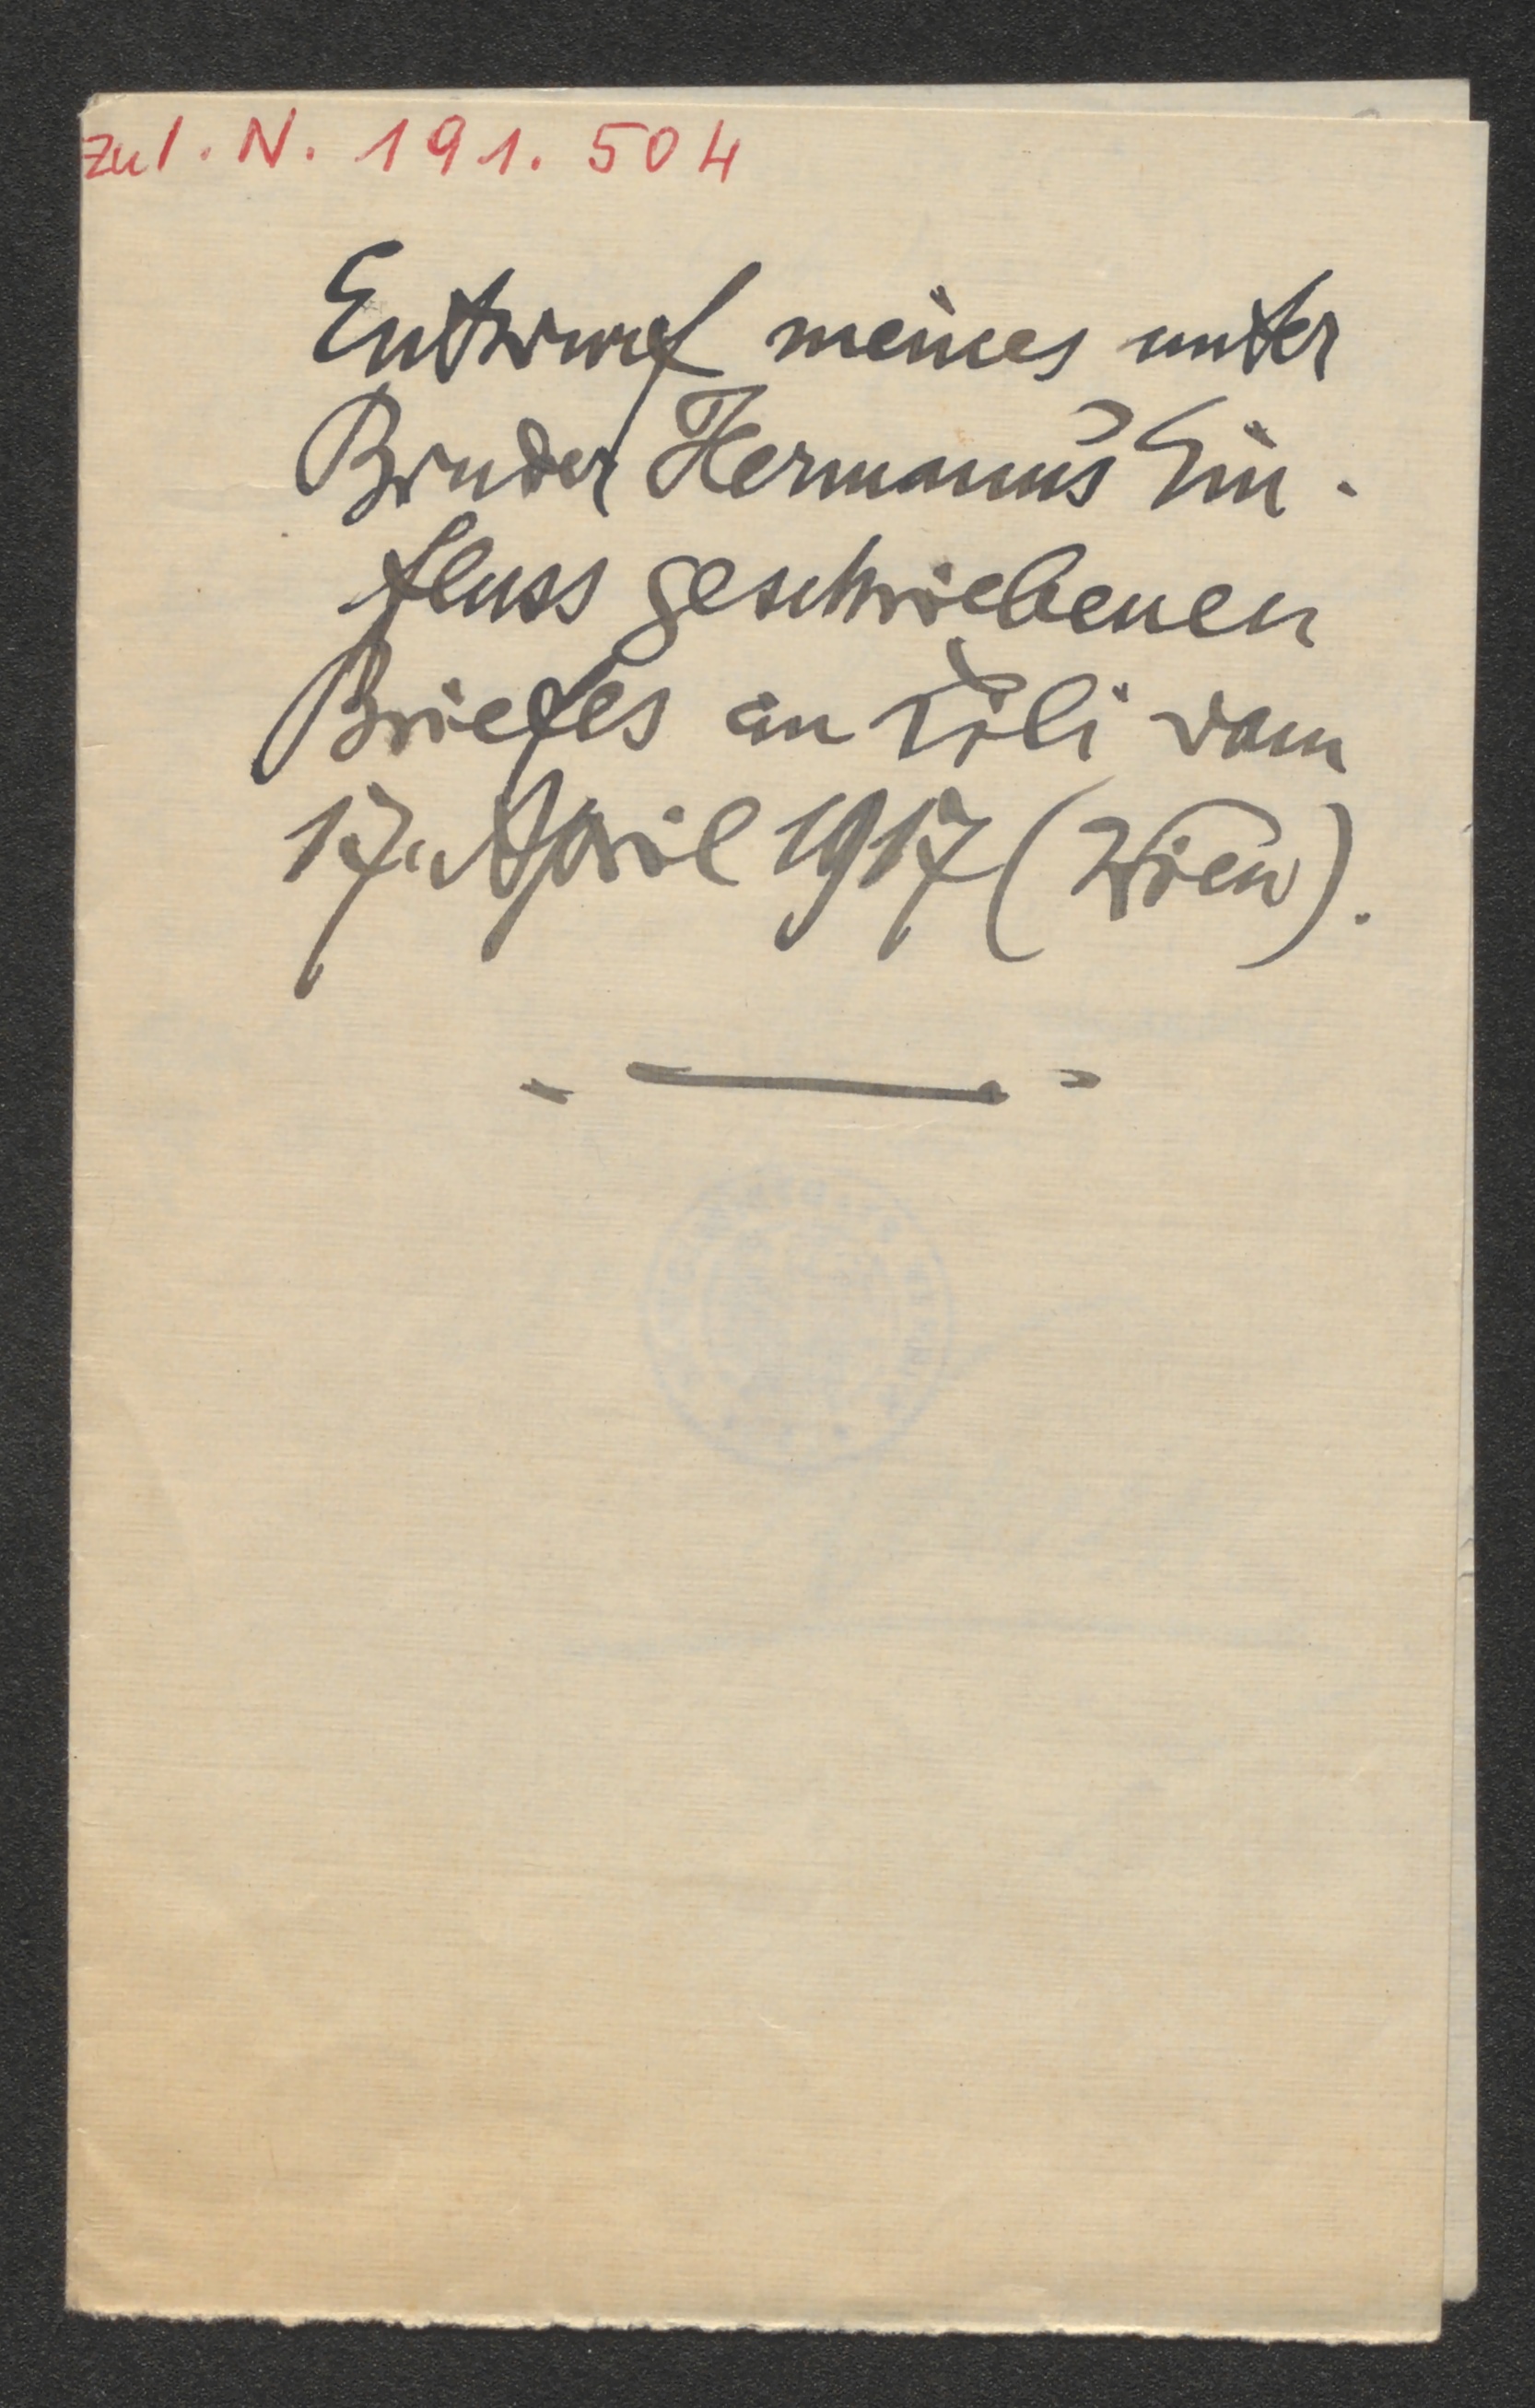 zu I. N. 191.504
Entwurf meines unter
Bruder Hermann's Ein-
fluss geschriebenen
Briefes an Tili vom
17. April 1917 (Wien).